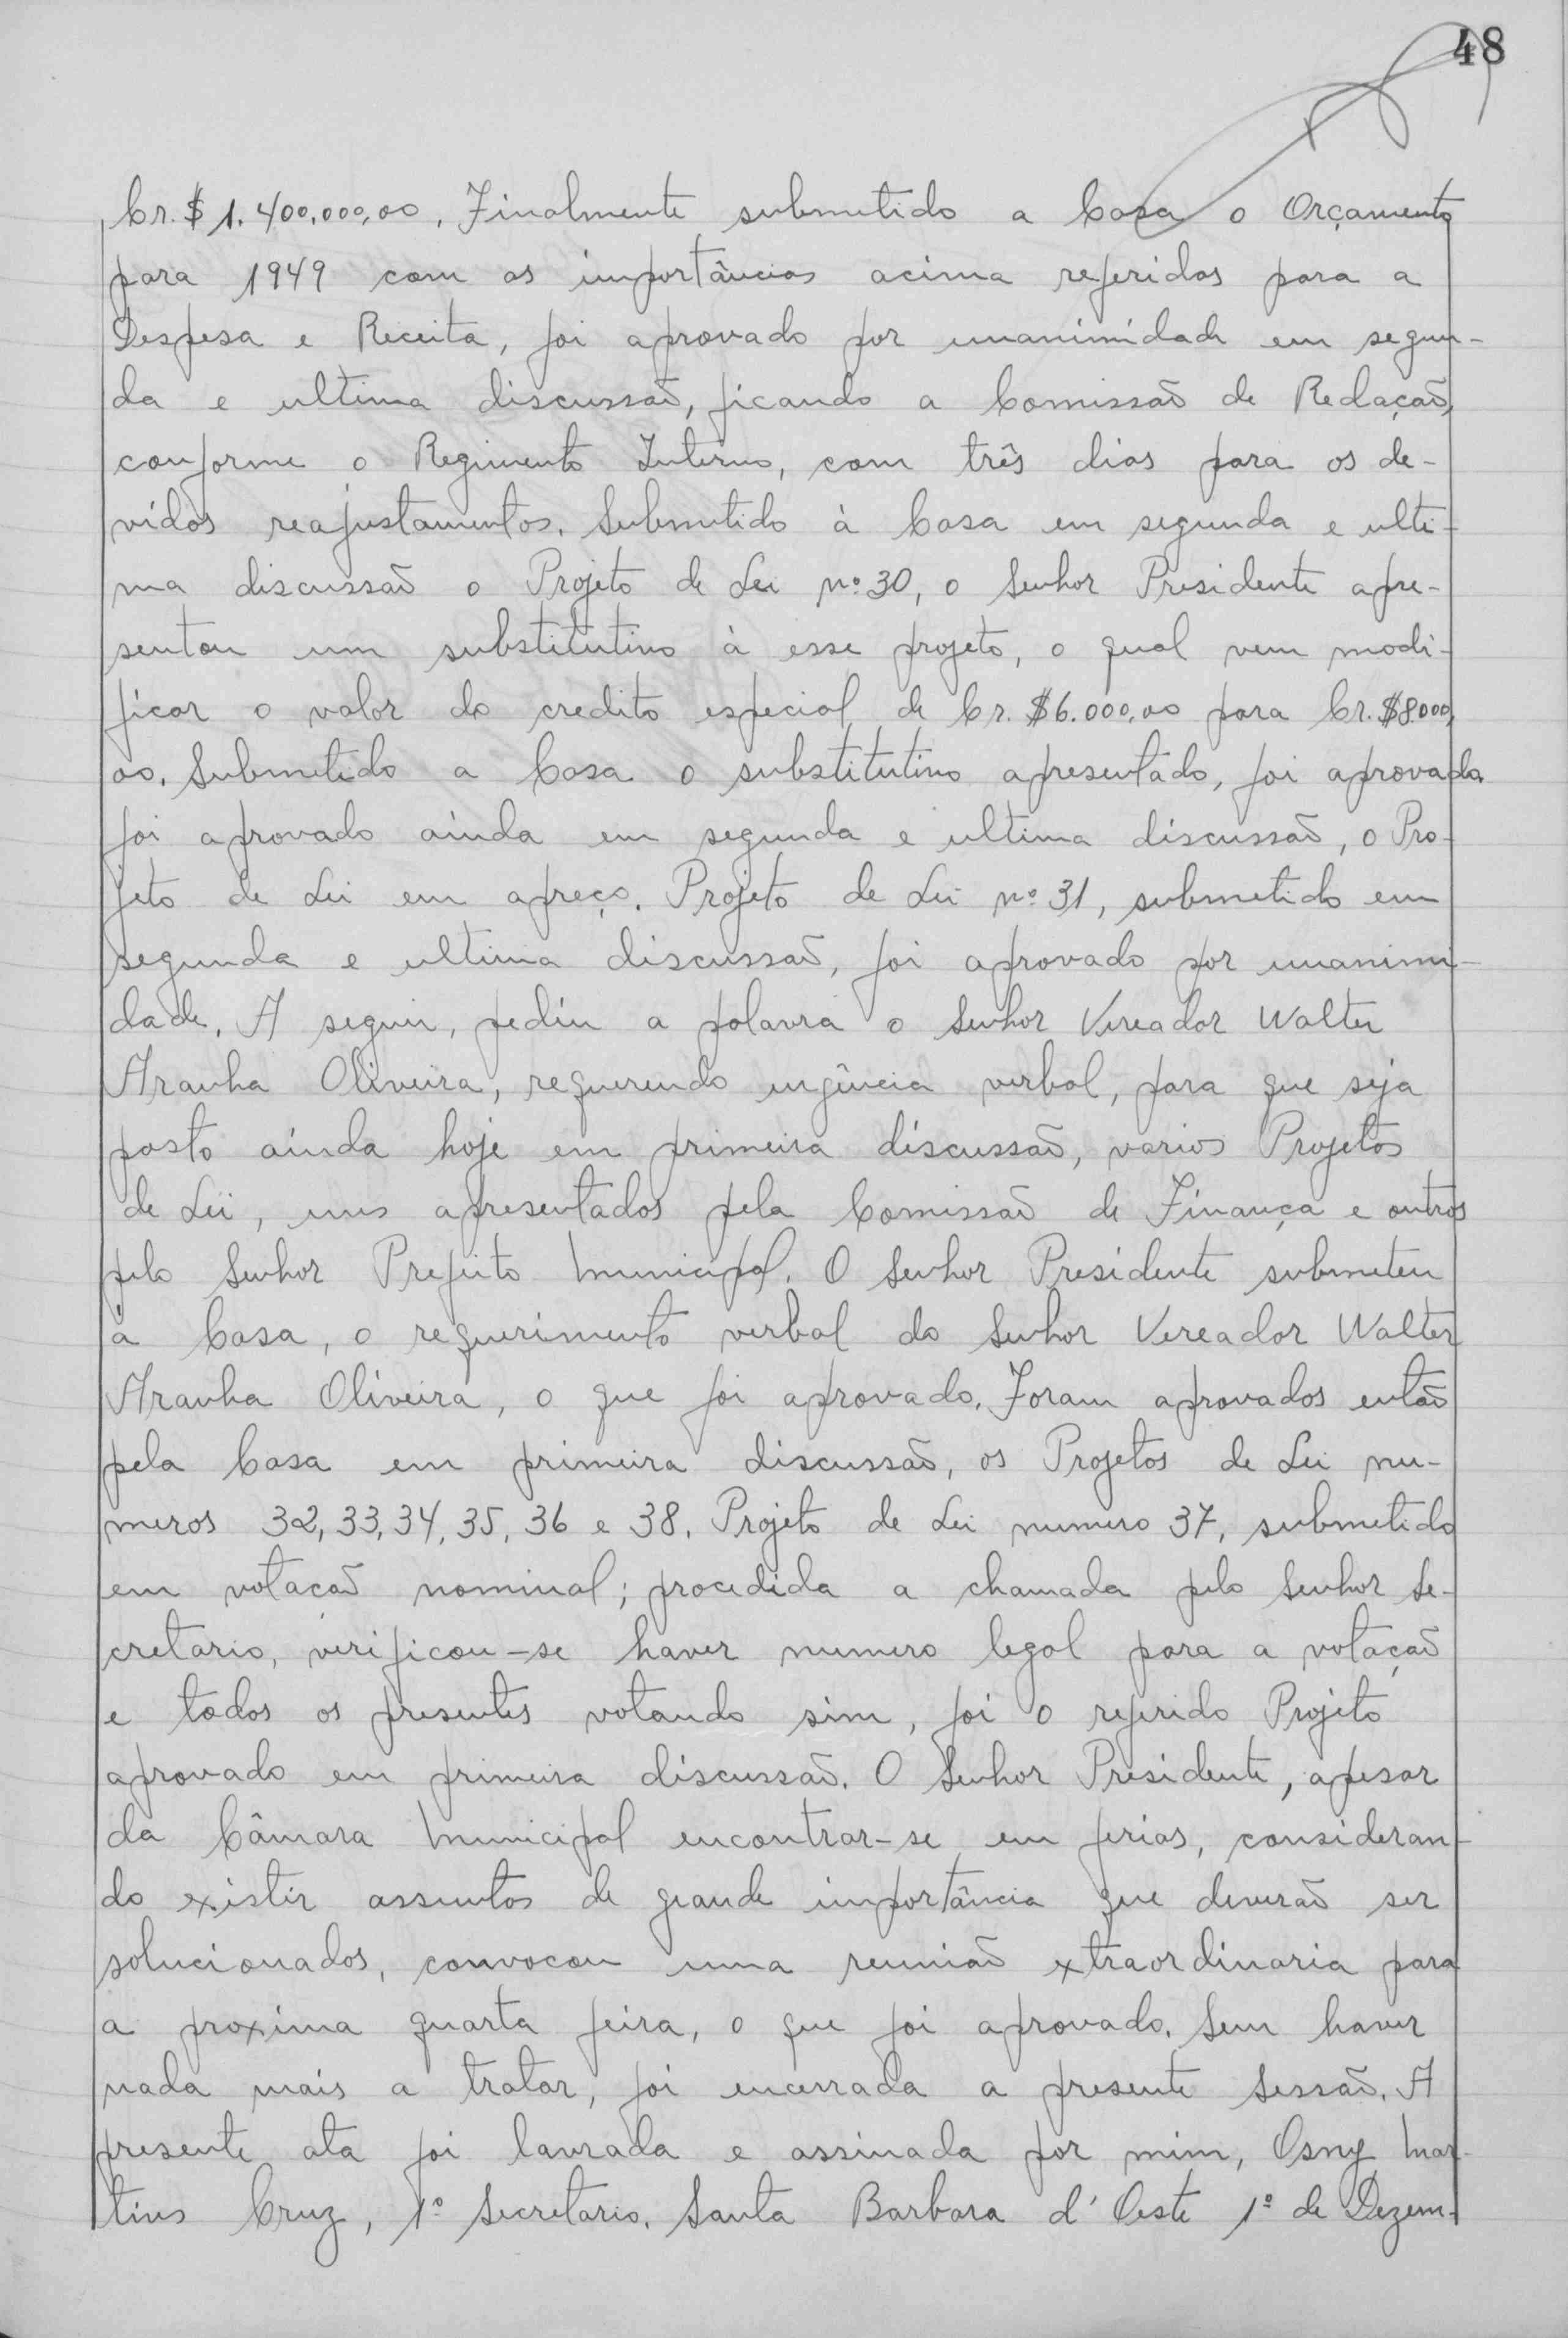 48
Cr.$ 1.400.000,00. Finalmente submetido a Casa o Orçamento
para 1949 com as importâncias acima referidas para a
Despesa e Receita, foi aprovado por unanimidade em segun-
da e ultima discussão, ficando a Comissão de Redação,
conforme o Regimento Interno, com três dias para os de-
vidos reajustamentos. Submetido à Casa em segunda e ulti-
ma discussão o Projeto de Lei nº 30, o Senhor Presidente apre-
sentou um substitutivo à esse projeto, o qual vem modi-
ficar o valor do credito especial de Cr. $6.000,00 para Cr. $8.000,
00. Submetido a Casa o substitutivo apresentado, foi aprovado.
foi aprovado ainda em segunda e ultima discussão, o Pro-
jeto de Lei em apreço. Projeto de Lei nº 31, submetido em
segunda e ultima discussão, foi aprovado por unanimi-
dade. A seguir, pediu a palavra o Senhor Vereador Walter
Aranha Oliveira, requerendo urgência verbal, para que seja
posto ainda hoje em primeira discussão, varios Projetos
de Lei, uns apresentados pela Comissão de Finança e outros
pelo Senhor Prefeito Municipal. O Senhor Presidente submeteu
à Casa, o requerimento verbal do Senhor Vereador Walter
Aranha Oliveira, o que foi aprovado. Foram aprovados então
pela Casa em primeira discussão, os Projetos de Lei nu-
meros 32, 33, 34, 35, 36 e 38. Projeto de Lei numero 37, submetido
em votação nominal; procedida a chamada pelo Senhor Se-
cretario, verificou-se haver numero legal para a votação
e todos os presentes votando sim, foi o referido Projeto
aprovado em primeira discussão. O Senhor Presidente, apesar
da Câmara Municipal encontrar-se em ferias, consideran-
do existir assuntos de grande importância que deverão ser
solucionados, convocou uma reunião extraordinaria para
a proxima quarta feira, o que foi aprovado. Sem haver
nada mais a tratar, foi encerrada a presente Sessão. A
presente ata foi lavrada e assinada por mim, Osny Mar-
tins Cruz, 1º Secretario. Santa Barbara d'Oeste 1º de Dezem-